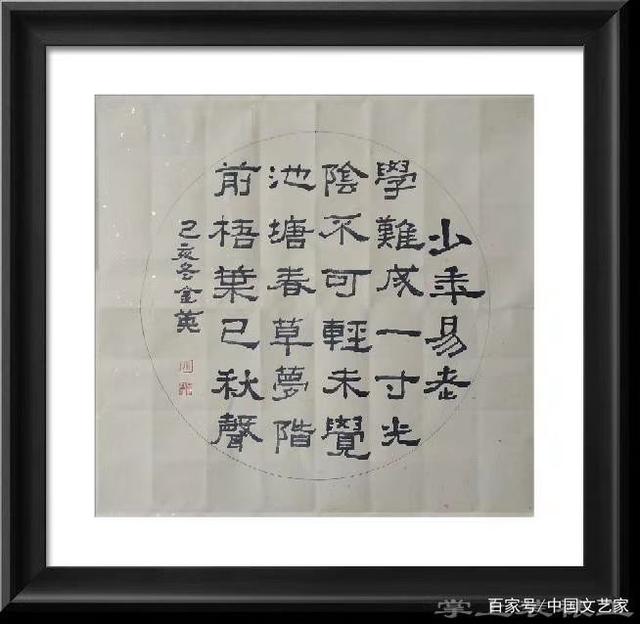 少年易老
學難成一寸光
陰不可輕未覺
池塘春草夢階
前梧葉已秋聲
己亥冬金英
百家号/中国文艺家